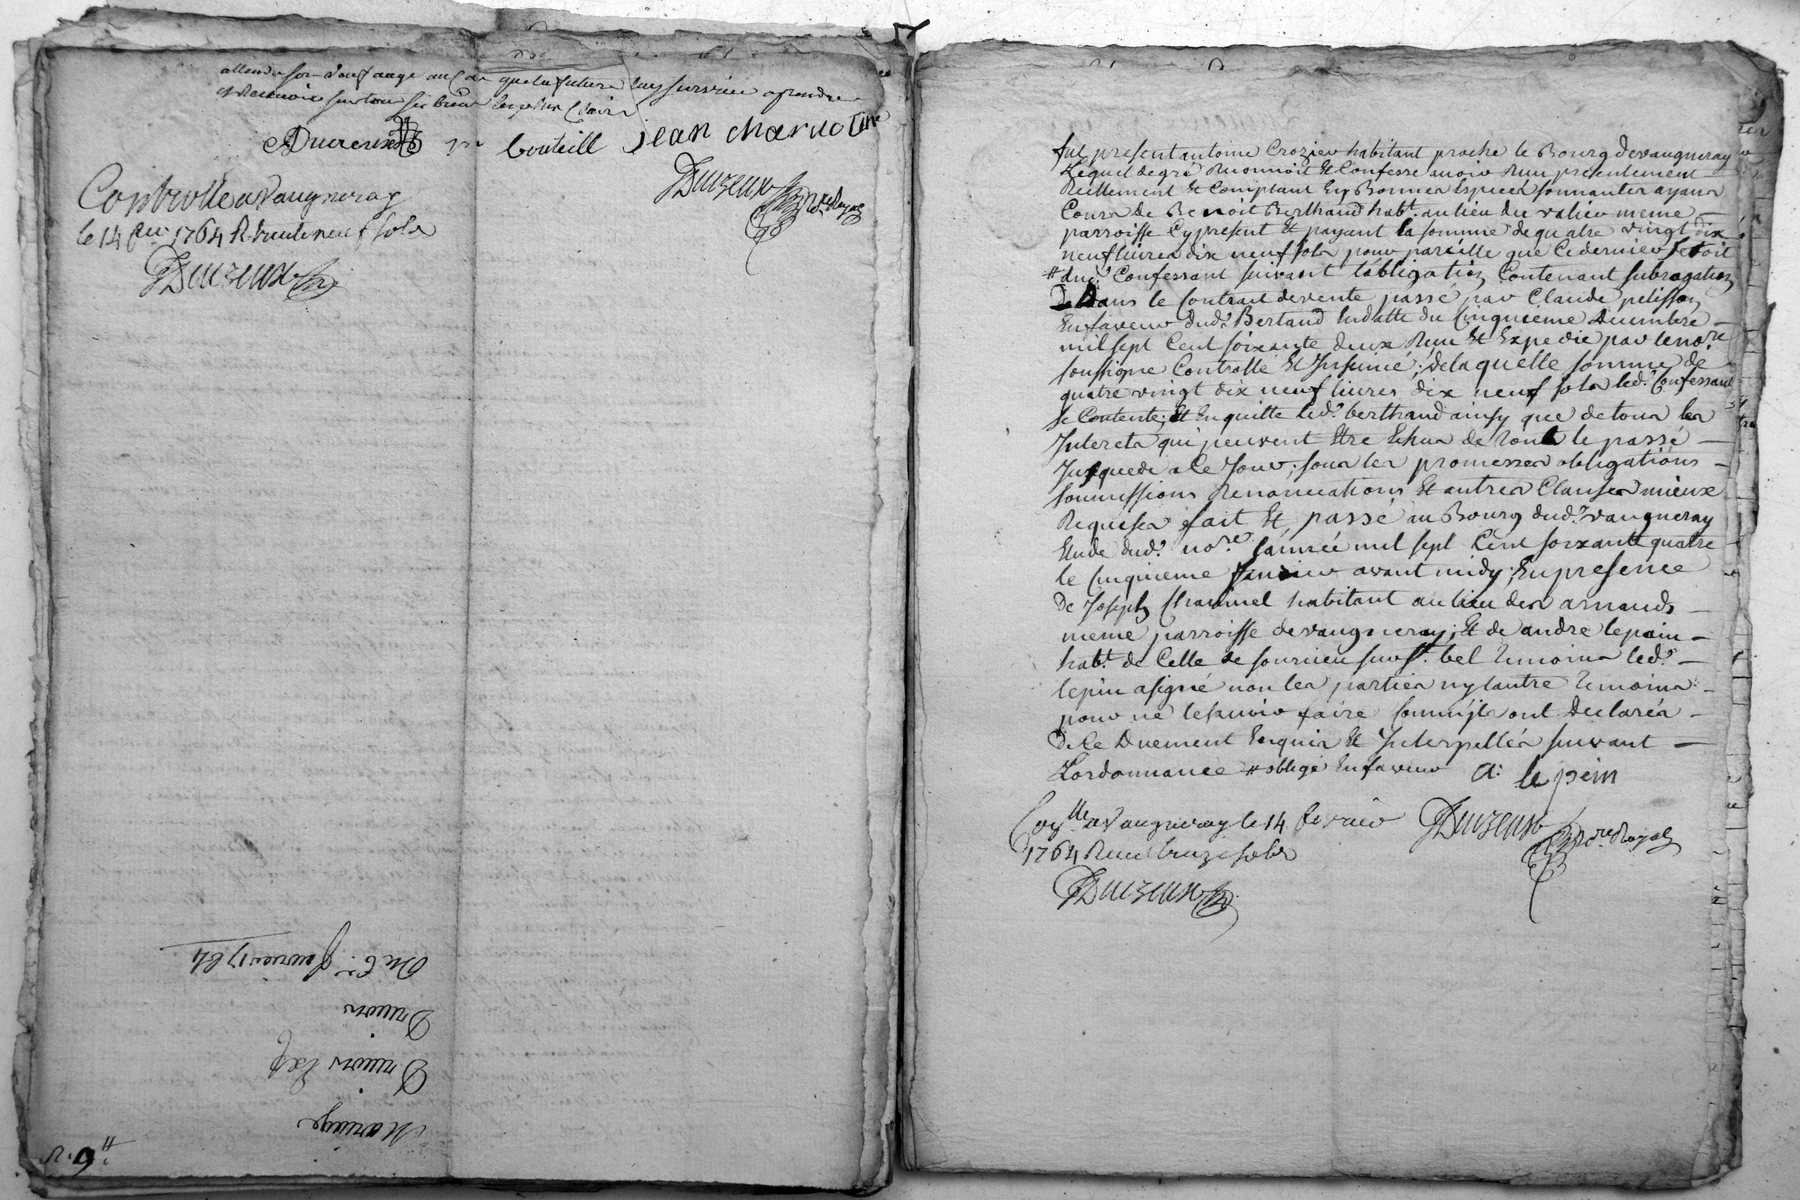 attendu son
Bouteill jean charvotine
DuizeuX no.re Royal
Controlle a Vaugneray
le 14 1764 R. vingt neuf sols
DuizeuX
Du 6.e Janvier 1764
Mariage
fut present antoine Crozier habitant proche le Bourg de vaugneray
Lequel de gré Reconnoit Et Confesse avoir Reçu presentement
Reellement Et Comptant En Bonnes Especes sonnantes ayans
Cours de Benoit Berthaud hab.t au lieu du valieu meme
parroisse Cy present Et payant la somme de quatre vingt dix
neuf livres dix neuf sols pour pareille que Ce dernier Setoit
# dud. Confessant suivant lobligation Contenant subrogation
Dans le Contrait de vente passé par Claude pelisson
En faveur dud. Bertaud En datte du Cinquieme Decembre
mil sept Cent soixante deux Reçu Et Expedié par le no.re
soussigné Controllé Et Insinué; de laquelle somme de
quatre vingt dix neuf livres dix neuf sols led. Confessant
se Contente, Et En quitte led. berthaud ainsy que de tous les
Interets qui peuvent Etre Echus de tout le passé
Jusquedi a Ce Jour; sous les promesses obligations
soumissions Renonciations Et autres Clauses mieux
Requises fait Et passé au Bourg dud. vaugneray
Etude dud. no.re l'année mil sept Cent soixante quatre
le Cinquieme Janvier avant midy; En presence
De Joseph Charmel habitant au lieu des arnauds
meme parroisse de vaugneray; Et de andre lepain
hab.t de Celle de sourcieu sur bel temoins led.
lepin a signé non les parties ny lautre temoins
pour ne le sçavoir faire Comme ils ont Declarés
de Ce Duement Enquis Et Interpellés suivant
Lordonnance # obligé En faveur a: le pein
Con.lle a Vaugneray le 14 fevrier DuizeuX no.re Royal
1764 Reçu treize sols
DuizeuX